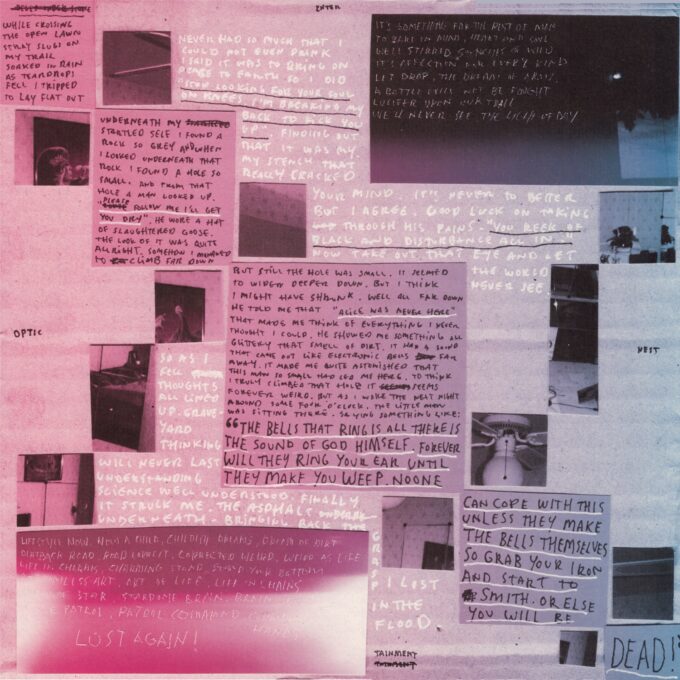 ENTER
WHILE CROSSING
THE OPEN LAWN
STRAY SLUGS ON
MY TRAIL
SOAKED IN RAIN
AS TEARDROPS
FELL I TRIPPED
TO LAY FLAT OUT
NEVER HAD SO MUCH THAT I
COULD NOT EVEN DRINK
I SAID IT WAS TO BRING ON
PEACE TO EARTH SO I DID
"STOP LOOKING FOR YOUR SOUL
ON KNEES, I'M BREAKING MY
BACK TO PICK YOU
UP". FINDING OUT
THAT IT WAS MY
MY STENCH THAT
REALLY CRACKED
IT'S SOMETHING FOR THE REST OF MEN
TO BARE IN MIND, HEART AND
WELL STIRRED OF WILD
IT'S AFFECTION FOR EVERY KIND
LET DROP, THE DREAMS OF
A BOTTLE COULD NOT BE FOUGHT
LUCIFER UPON OUR TRAIL
WE'LL NEVER SEE THE LIGHT OF DAY
UNDERNEATH MY
STARTLED SELF I FOUND A
ROCK SO GREY AND WHEN
I LOOKED UNDERNEATH THAT
ROCK I FOUND A HOLE SO
SMALL, AND FROM THAT
HOLE A MAN LOOKED UP.
"PLEASE FOLLOW ME I'LL GET
YOU DRY". HE WORE A HAT
OF SLAUGHTERED GOOSE.
THE LOOK OF IT WAS QUITE
ALRIGHT. SOMEHOW I MANAGED
TO CLIMB FAR DOWN
YOUR MIND. IT'S NEVER TO BETTER
BUT I AGREE. GOOD LUCK ON TAKING
THROUGH HIS PAINS. "YOU REEK OF
BLACK AND DISTURBANCE ALL IN."
NOW TAKE OUT THAT EYE AND LET
THE WORLD
NEVER SEE.
BUT STILL THE HOLE WAS SMALL. IT SEEMED
TO WIDEN DEEPER DOWN. BUT I THINK
I MIGHT HAVE SHRUNK. WELL ALL FAR DOWN
HE TOLD ME THAT "ALICE WAS NEVER HERE"
THAT MADE ME THINK OF EVERYTHING I NEVER
THOUGHT I COULD. HE SHOWED ME SOMETHING ALL
GLITTERY THAT SMELL OF DIRT. IT HAD A SOUND
THAT CAME OUT LIKE ELECTRONIC BELLS FAR
AWAY. IT MADE ME QUITE ASTONISHED THAT
THIS MAN SO SMALL HAD LED ME HERE. TO THINK
I TRULY CLIMBED THAT HOLE IT SEEMS
FOREVER WEIRD. BUT AS I WOKE THE NEXT NIGHT
AROUND SOME FORK O'CLOCK. THE LITTLE MAN
WAS SITTING THERE. SAYING SOMETHING LIKE:
"THE BELLS THAT RING IS ALL THERE IS
THE SOUND OF GOD HIMSELF. FOREVER
WILL THEY RING YOUR EAR UNTIL
THEY MAKE YOU WEEP. NOONE
OPTIC
NEST
SO AS I
FELL
THOUGHTS
ALL LINED
UP. GRAVE-
YARD
THINKING
WILL NEVER LAST
UNDERSTANDING
SCIENCE WELL UNDERSTOOD. FINALLY
IT STRUCK ME. THE ASPHALT
UNDERNEATH. BRINGING BACK THE
GRASP I LOST
IN THE
FLOOD.
CAN COPE WITH THIS
UNLESS THEY MAKE
THE BELLS THEMSELVES
SO GRAB YOUR IRON
AND START TO
SMITH. OR ELSE
YOU WILL BE
DEAD!"
NOW, CHILDISH DREAMS, DREAMS OF DIRT
ROAD, ROAD CORRECT, CORRECTED WEIRD, WEIRD AS LIFE
LIFE IN CHAINS, STAND, YOUR BOTTOM
ART, ART OF LIFE, LIFE IN CHAINS
STAR, STARDOME BRAIN
PATROL, PATROL COMMAND
LOST AGAIN!
TAINMENT